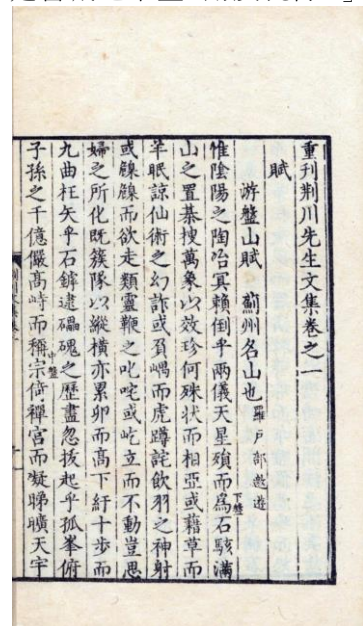 重刊荆川先生文集卷之一
賦
游盤山賦 薊州名山也 羅戸部邀遊
惟陰陽之陶冶冥賴倒乎兩儀天星殞而爲石駭滿下盤
山之置棊搜萬象以效珍何殊状而相亞或藉草而
羊眠諒仙術之幻詐或負嵎而虎蹲詫飲羽之神射
或餱餱而欲走類靈鞭之叱咤或屹立而不動豈思
婦之所化既簇隊以縱橫亦累卵而高下紆十步而
九曲枉矢乎石鏬逮礧磈之歷盡忽拔起乎孤峯俯中盤
子孫之千億儼高峙而稱宗倚禪宮而凝睇曠天宇